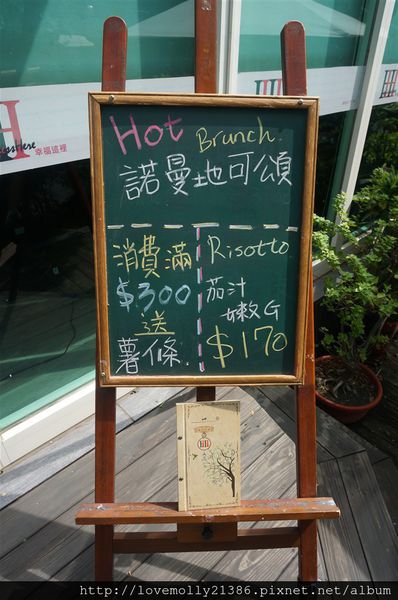 Hot Brunch.
諾曼地可頌
消費滿
$300
送
薯條.
Risotto
茄汁
嫩G
$170
幸福這裡
http://lovemolly21386.pixnet.net/album